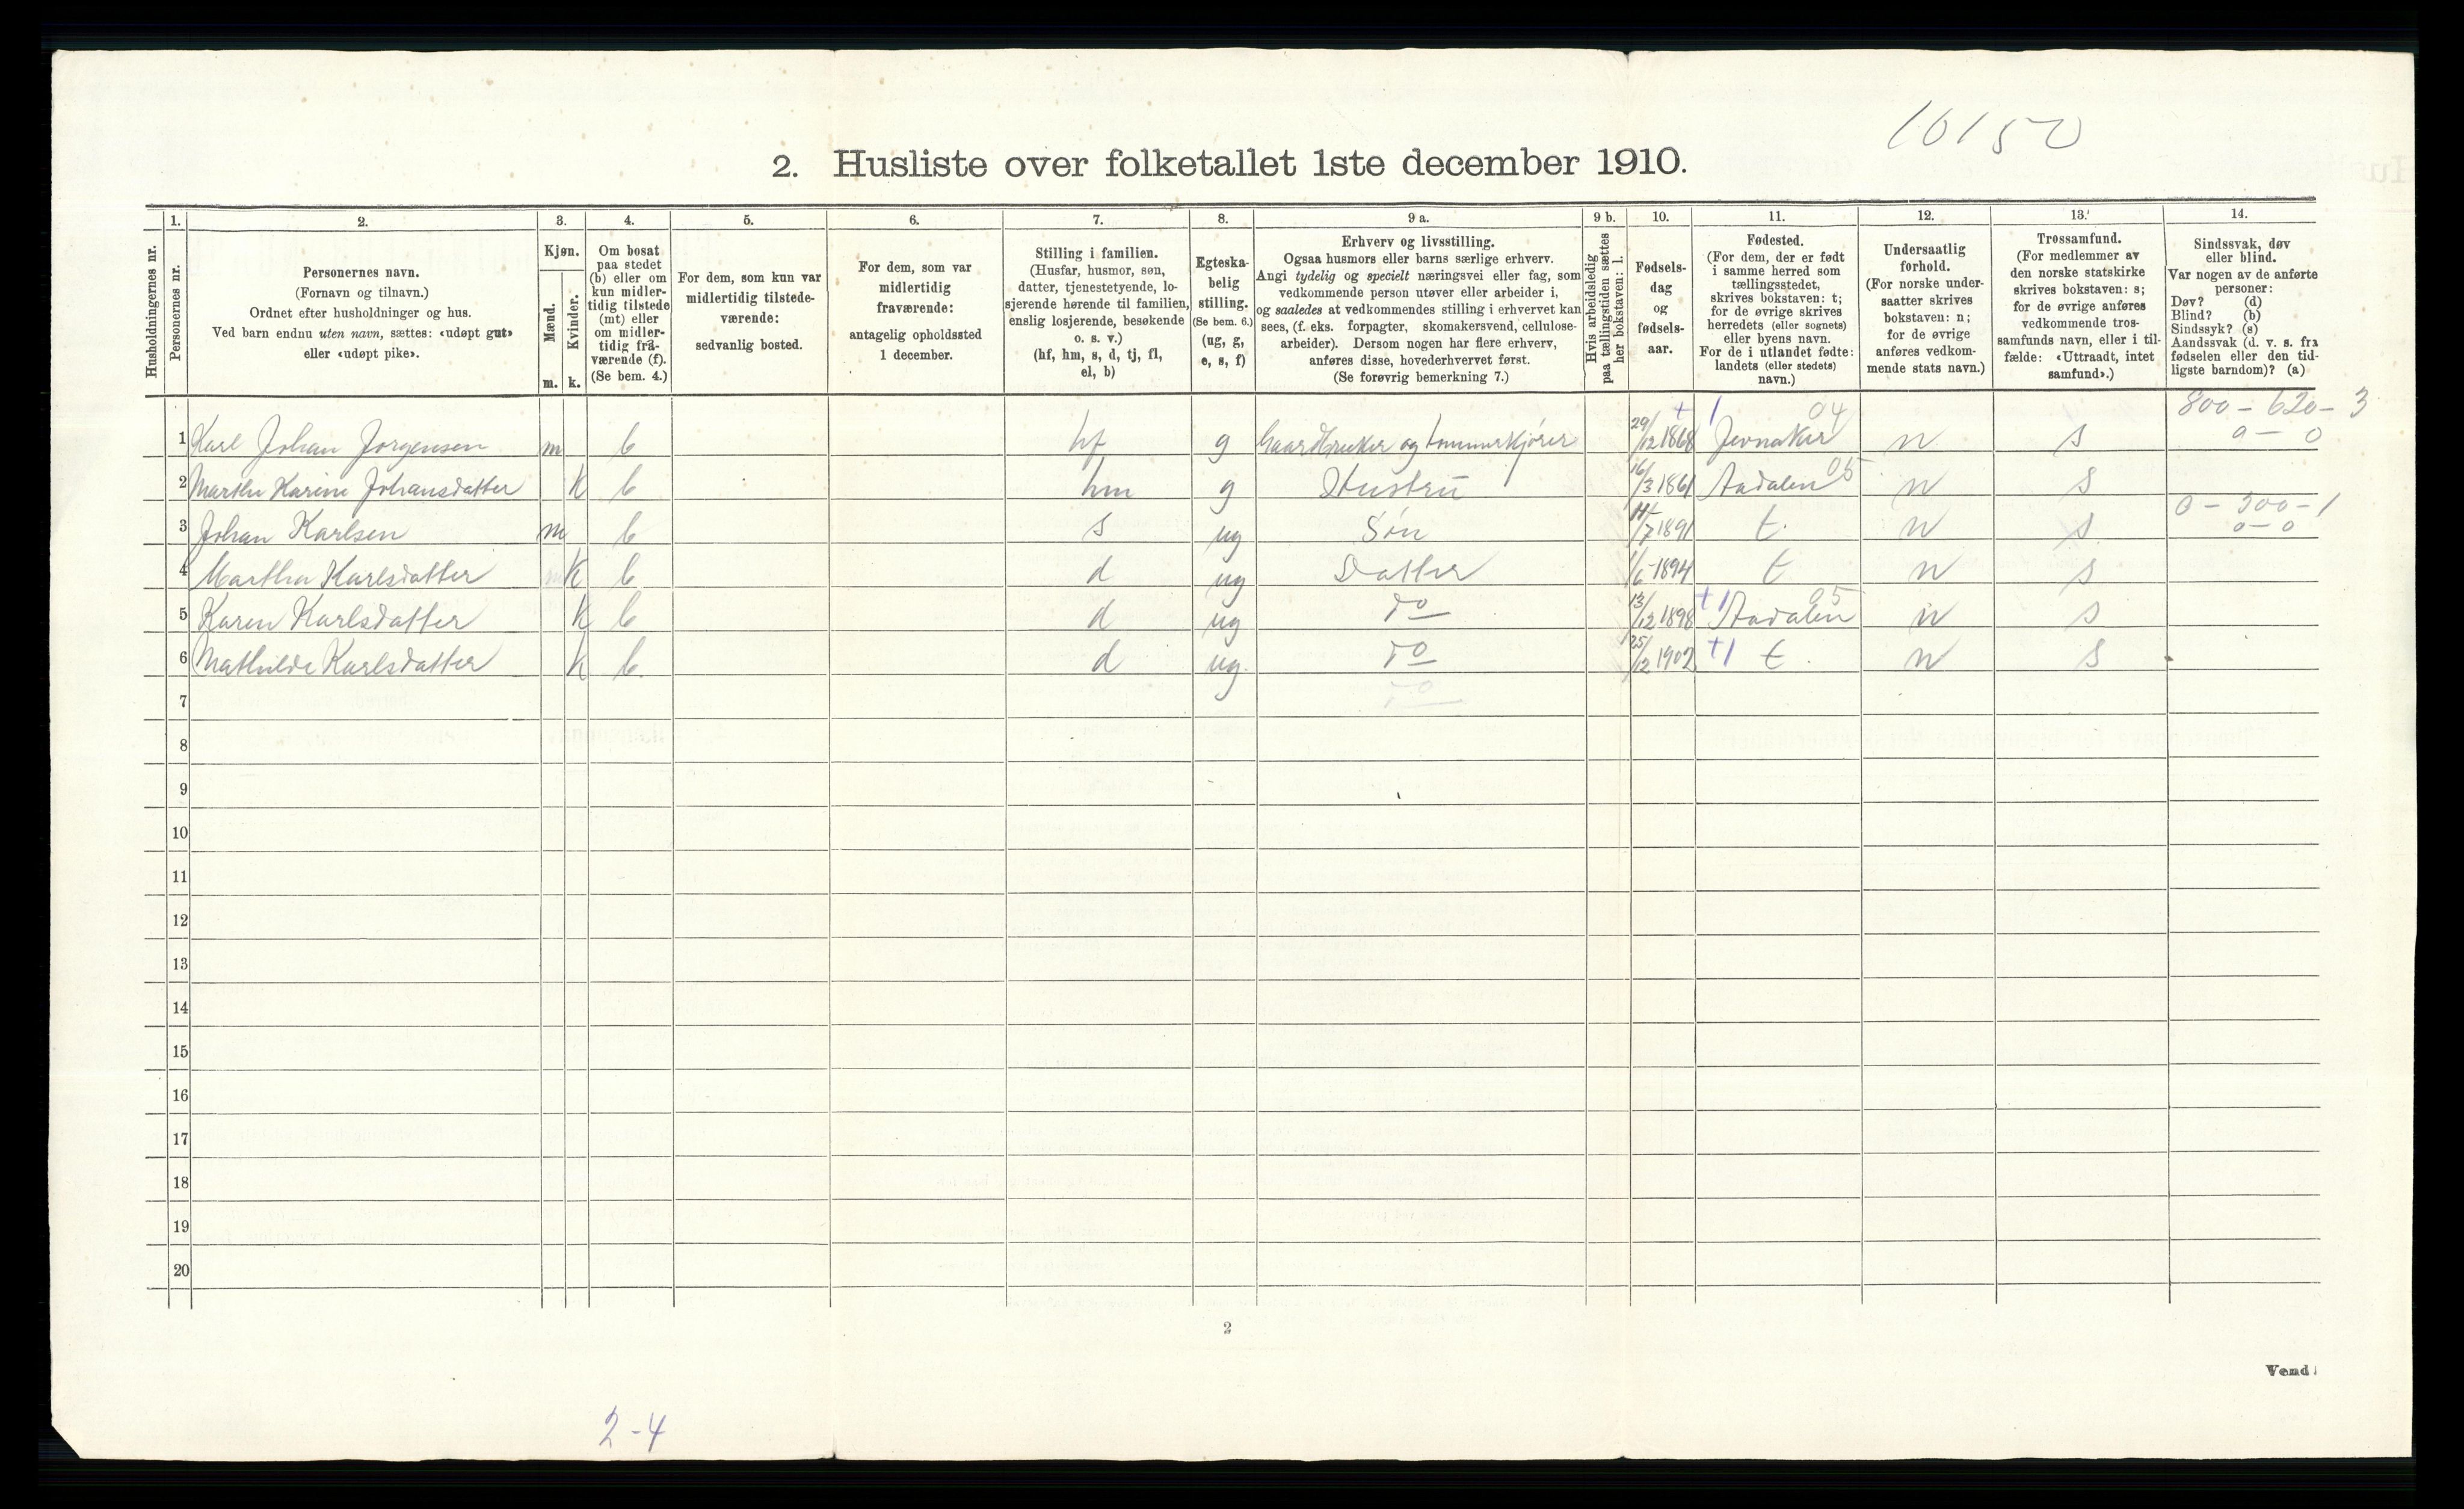 10150
2. Husliste over folketallet 1ste december 1910.
Husholdningernes nr.
1.
Personernes nr.
2.
Personernes navn.
(Fornavn og tilnavn.)
Ordnet efter husholdninger og hus.
Ved barn endnu uten navn, sættes: «udøpt gut»
eller «udøpt pike».
3.
Kjøn.
Mænd.
Kvinder.
m. k.
4.
Om bosat
paa stedet
(b) eller om
kun midler-
tidig tilstede
(mt) eller
om midler-
tidig fra-
værende (f).
(Se bem. 4.)
5.
For dem, som kun var
midlertidig tilstede-
værende:
sedvanlig bosted.
6.
For dem, som var
midlertidig
fraværende:
antagelig opholdssted
1 december.
7.
Stilling i familien.
(Husfar, husmor, søn,
datter, tjenestetyende, lo-
sjerende hørende til familien,
enslig losjerende, besøkende
o. s. v.)
(hf, hm, s, d, tj, fl,
el, b)
8.
Egteska-
belig
stilling.
(Se bem. 6.)
(ug, g,
e, s, f)
9 a.
Erhverv og livsstilling.
Ogsaa husmors eller barns særlige erhverv.
Angi tydelig og specielt næringsvei eller fag, som
vedkommende person utøver eller arbeider i,
og saaledes at vedkommendes stilling i erhvervet kan
sees, (f. eks. forpagter, skomakersvend, cellulose-
arbeider). Dersom nogen har flere erhverv,
anføres disse, hovederhvervet først.
(Se forøvrig bemerkning 7.)
9 b.
Hvis arbeidsledig
paa tællingstiden sættes
her bokstaven: l.
10.
Fødsels-
dag
og
fødsels-
aar.
11.
Fødested.
(For dem, der er født
i samme herred som
tællingsstedet,
skrives bokstaven: t;
for de øvrige skrives
herredets (eller sognets)
eller byens navn.
For de i utlandet fødte:
landets (eller stedets)
navn.)
12.
Undersaatlig
forhold.
(For norske under-
saatter skrives
bokstaven: n;
for de øvrige
anføres vedkom-
mende stats navn.)
13.
Trossamfund.
(For medlemmer av
den norske statskirke
skrives bokstaven: s;
for de øvrige anføres
vedkommende tros-
samfunds navn, eller i til-
fælde: «Uttraadt, intet
samfund».)
14.
Sindssvak, døv
eller blind.
Var nogen av de anførte
personer:
Døv? (d)
Blind? (b)
Sindssyk? (s)
Aandssvak (d. v. s. fra
fødselen eller den tid-
ligste barndom)? (a)
+ 1 04 800 - 620 - 3
1 Karl Johan Jørgensen m b hf g Gaardbruker og tømmerkjører 29/12 1868 Jevnaker n s 0 - 0
2 Marthe Karine Johansdatter k b hm g Hustru 16/3 1861 Aadalen 05 n s
0 - 300 - 1
3 Johan Karlsen m b s ug Søn 11/7 1891 t. n s 0 - 0
4 Martha Karlsdatter k b d ug Datter 1/6 1894 t n s
5 Karen Karlsdatter k b d ug Do 13/12 1898 +1 Aadalen 05 n s
6 Mathilde Karlsdatter k b. d ug. Do 25/12 1902 +1 t. n s
7 Do
8
9
10
11
12
13
14
15
16
17
18
19
20
2
Vend
2-4